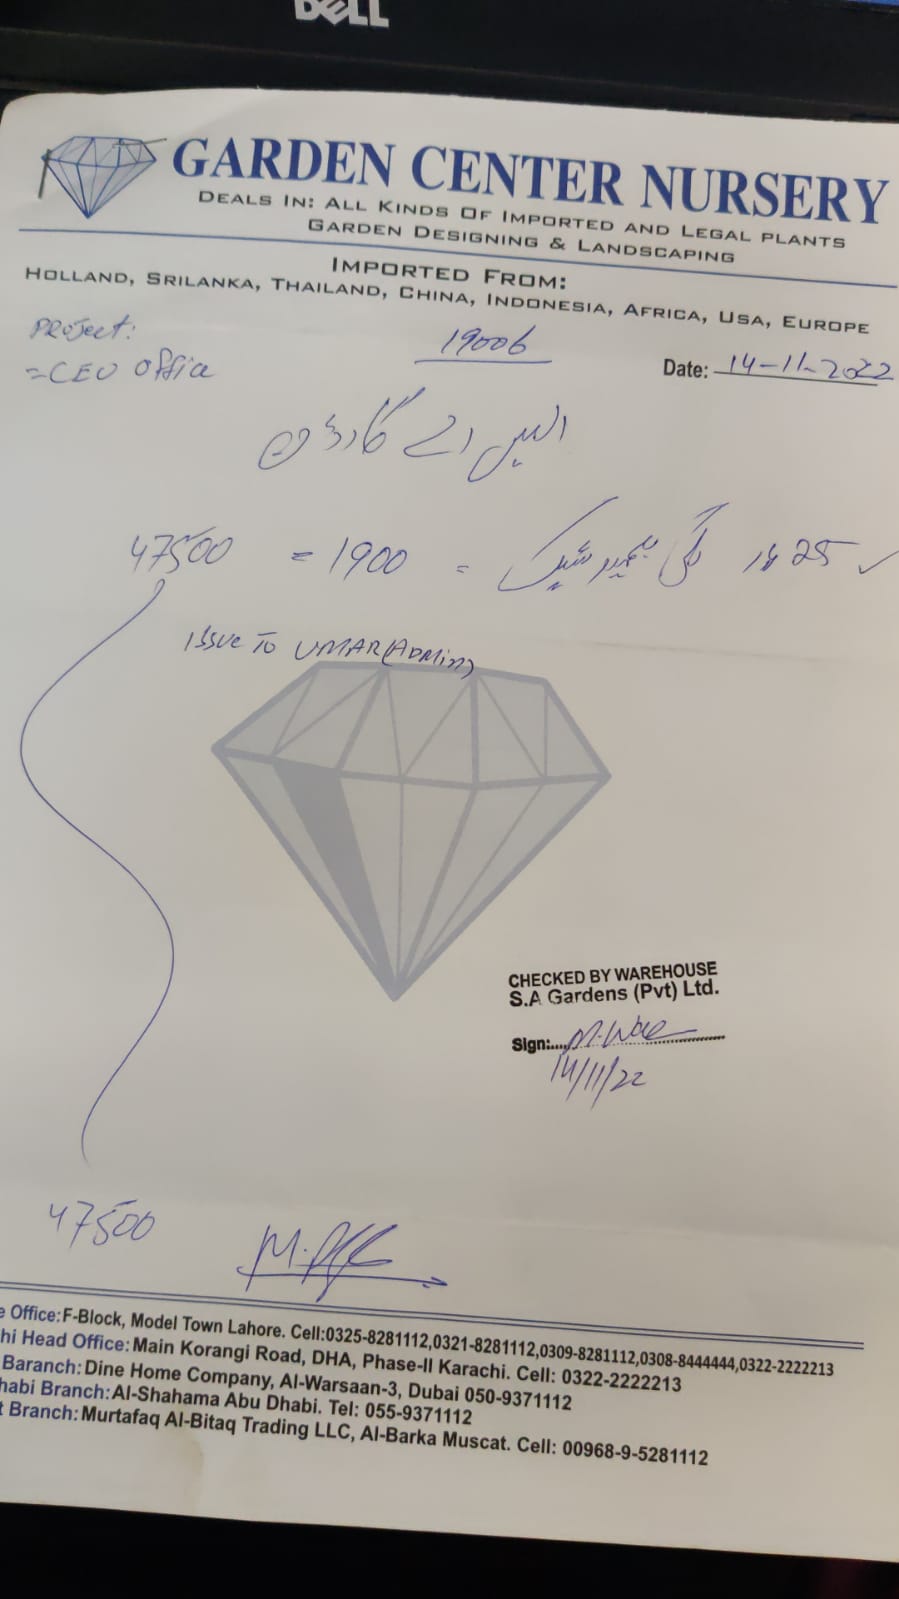 DELL
GARDEN CENTER NURSERY
DEALS IN: ALL KINDS OF IMPORTED AND LEGAL PLANTS
GARDEN DESIGNING & LANDSCAPING
IMPORTED FROM:
HOLLAND, SRILANKA, THAILAND, CHINA, INDONESIA, AFRICA, USA, EUROPE
PROJECT:
=CEO Office
19006
Date: 14-11-2022
ایس اے گارڈن
25 = 1900 = 47500
ISSUE TO UMAR (ADMIN)
CHECKED BY WAREHOUSE
S.A Gardens (Pvt) Ltd.
Sign:
14/11/22
47500
e Office: F-Block, Model Town Lahore. Cell:0325-8281112,0321-8281112,0309-8281112,0308-8444444,0322-2222213
hi Head Office: Main Korangi Road, DHA, Phase-II Karachi. Cell: 0322-2222213
Baranch: Dine Home Company, Al-Warsaan-3, Dubai 050-9371112
habi Branch: Al-Shahama Abu Dhabi. Tel: 055-9371112
t Branch: Murtafaq Al-Bitaq Trading LLC, Al-Barka Muscat. Cell: 00968-9-5281112